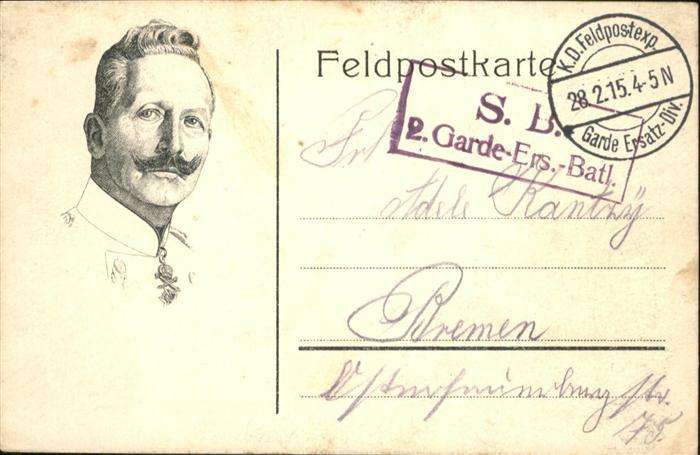 Feldpostkarte
K.D. Feldpostexp.
28 2.15. 4-5 N
Garde Ersatz-Div.
S. B.
2. Garde-Ers.-Batl.
Adele
Bremen
Str.